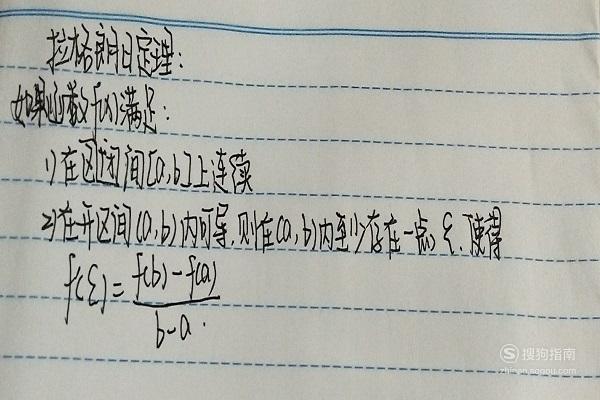 拉格朗日定理:
如果函数f(x)满足:
1)在区闭间[a,b]上连续
2)在开区间(a,b)内可导,则在(a,b)内至少存在一点ξ,使得
f(ξ)=\frac{f(b)-f(a)}{b-a}.
搜狗指南
zhinan.sogou.com